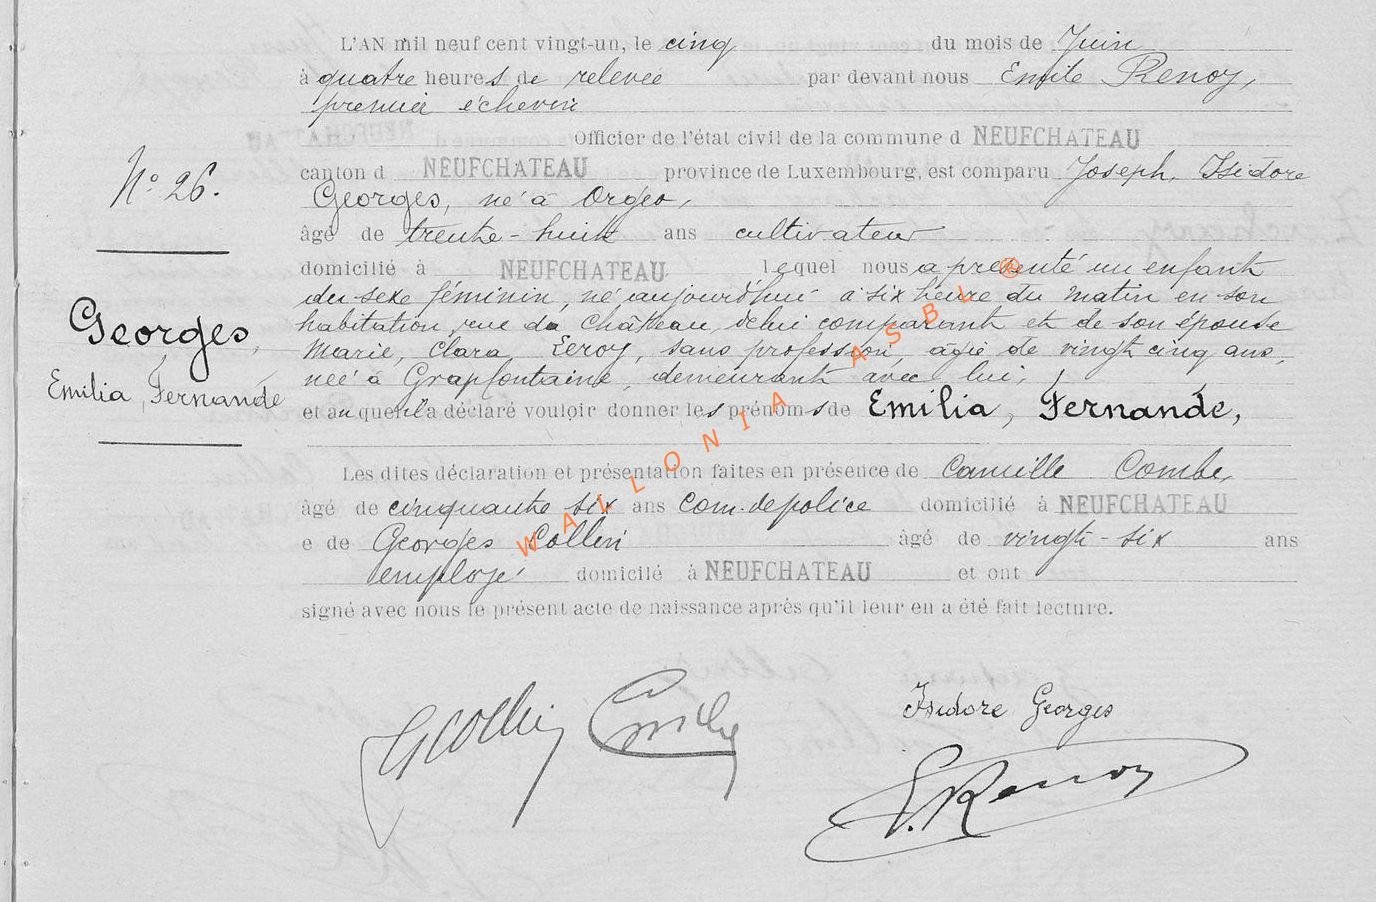 L'AN mil neuf cent vingt-un, le cinq du mois de Juin
à quatre heures de relevée par devant nous Emile Renoy,
premier échevin
Officier de l'état civil de la commune d NEUFCHATEAU
N° 26.
canton d NEUFCHATEAU province de Luxembourg, est comparu Joseph, Isidore
Georges, né à Orgeo,
âgé de trente-huit ans cultivateur
domicilié à NEUFCHATEAU lequel nous a présenté un enfant
du sexe féminin, né aujourd'hui à six heure du matin en son
habitation rue du Château, de lui comparant et de son épouse
Marie, Clara, Leroy, sans profession, âgée de vingt cinq ans,
née à Grapfontaine, demeurant avec lui,
Georges,
Emilia, Fernande
et auquel il a déclaré vouloir donner les prénoms de Emilia, Fernande,
Les dites déclaration et présentation faites en présence de Camille Combe,
âgé de cinquante six ans com. de police domicilié à NEUFCHATEAU
e de Georges Collin âgé de vingt-six ans
employé domicilié à NEUFCHATEAU et ont
signé avec nous le présent acte de naissance après qu'il leur en a été fait lecture.
WALLONIA ASBL ®
GCollin
Isidore Georges
E. Renoy